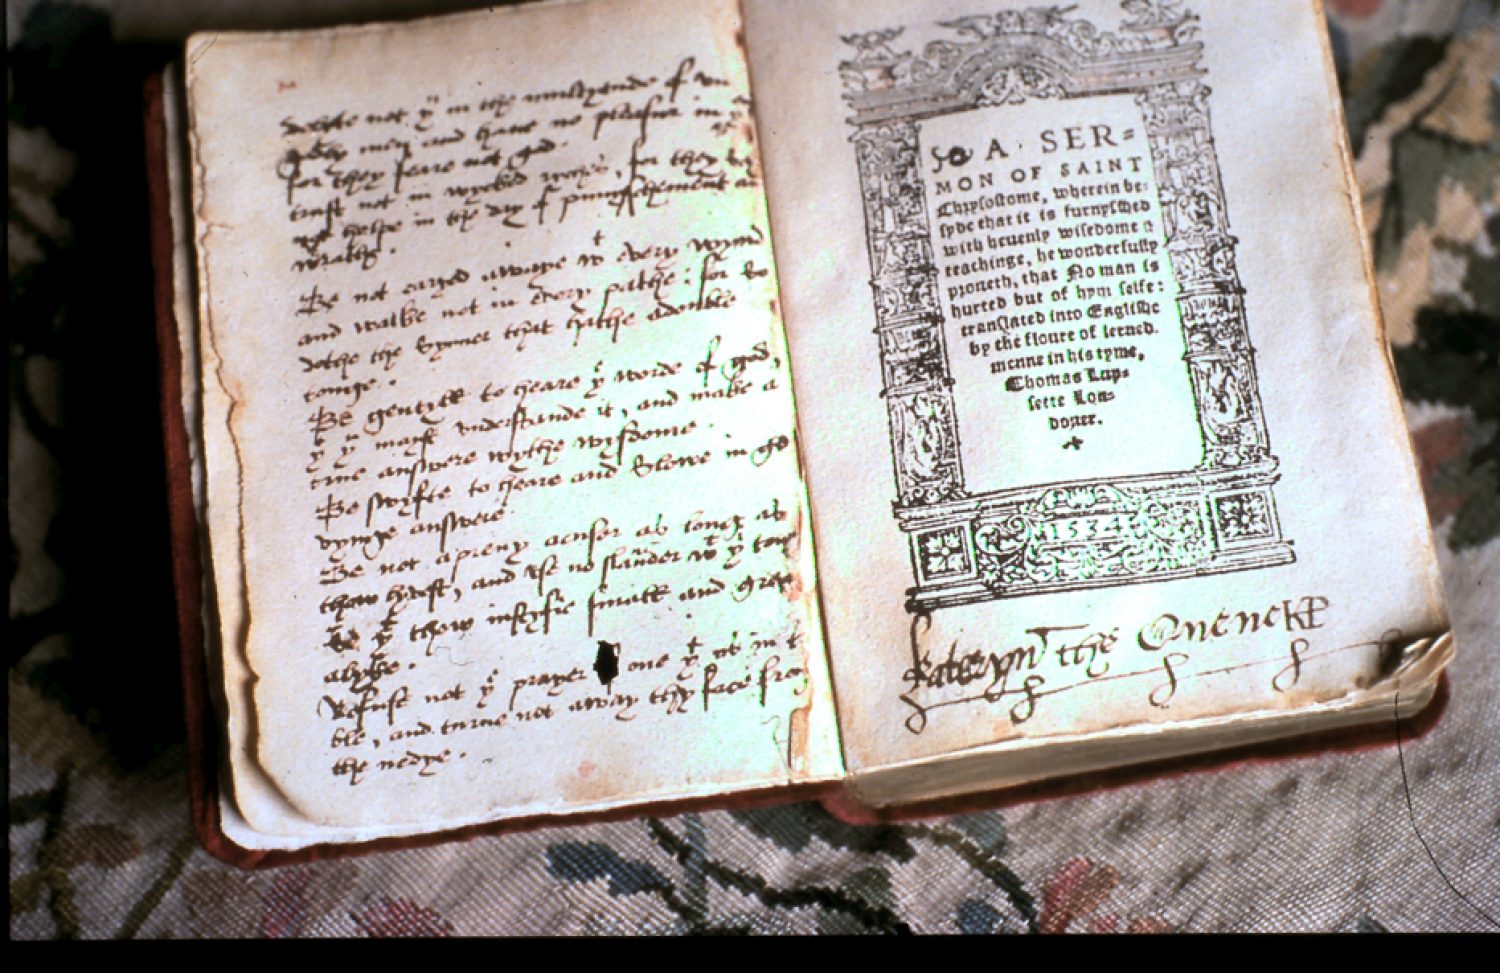 delyte not yͤ in the multytude of vn
godly men and haue no pleasur in yͤ
for they feare not god.
trust not in wycked ryches, for they
not helpe in the day of punyschement
wrathe.
Be not caryed awaye wᵗ euery wynd
and walke not in euery pathe: for so
dothe the synner that hathe a double
tonge.
Be gentyll to heare yͤ worde of god,
yᵗ yͧ mayst vnderstande it, and make a
true answere wythe wysdome.
Be swyfte to heare and slowe in ge
vynge answere.
Be not a preuy acuser as longe as
thow lyuest, and vse no slāder wᵗ yͤ ton
Se yᵗ thow iustyfie small and gre
alyke.
Refuse not yͤ prayer of one yᵗ is in t
ble, and turne not away thy face fro
the nedye.
A · SER=
MON OF SAINT
Chrysostome, wherein be=
syde that it is furnysched
with heuenly wisedome &
teachinge, he wonderfully
proueth, that No man is
hurted but of hym selfe:
translated into Englishe
by the floure of lerned
menne in his tyme,
Thomas Lup=
sette Lon=
doner.
1534
Kateryn the Quene KP